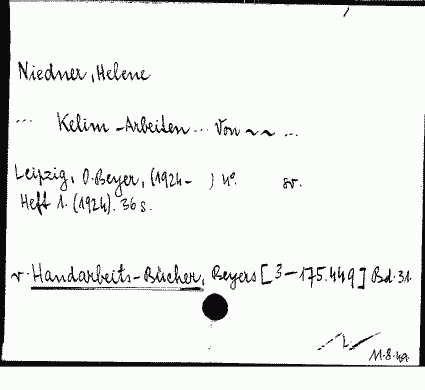 Niedner, Helene
... Kelim-Arbeiten ... Von ~~ ...
Leipzig, O. Beyer, (1924- ) 4°. 8v.
Heft 1. (1924). 36 s.
v. Handarbeits-Bücher, Beyers [3-175.449] Bd. 31.
11.8.49.